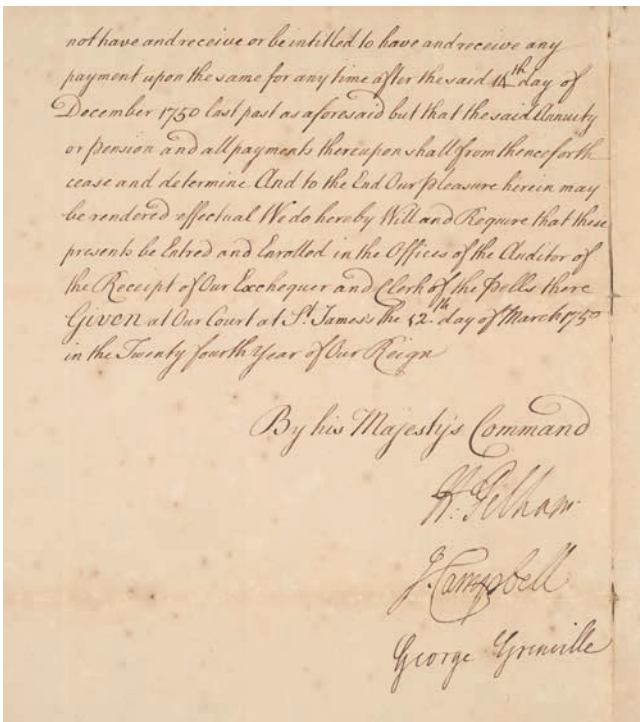 not have and receive or be intitled to have and receive any
payment upon the same for any time after the said 14th day of
December 1750 last past as aforesaid but that the said Annuity
or Pension and all payments thereupon shall from thenceforth
cease and determine And to the End Our Pleasure herein may
be rendered effectual We do hereby Will and Require that these
presents be Entred and Enrolled in the Offices of the Auditor of
the Receipt of Our Exchequer and Clerk of the Pells there
Given at Our Court at St. James's the 12.th day of March 1750
in the Twenty fourth Year of Our Reign
By his Majesty's Command
H: Pelham.
J. Campbell
George Grenville